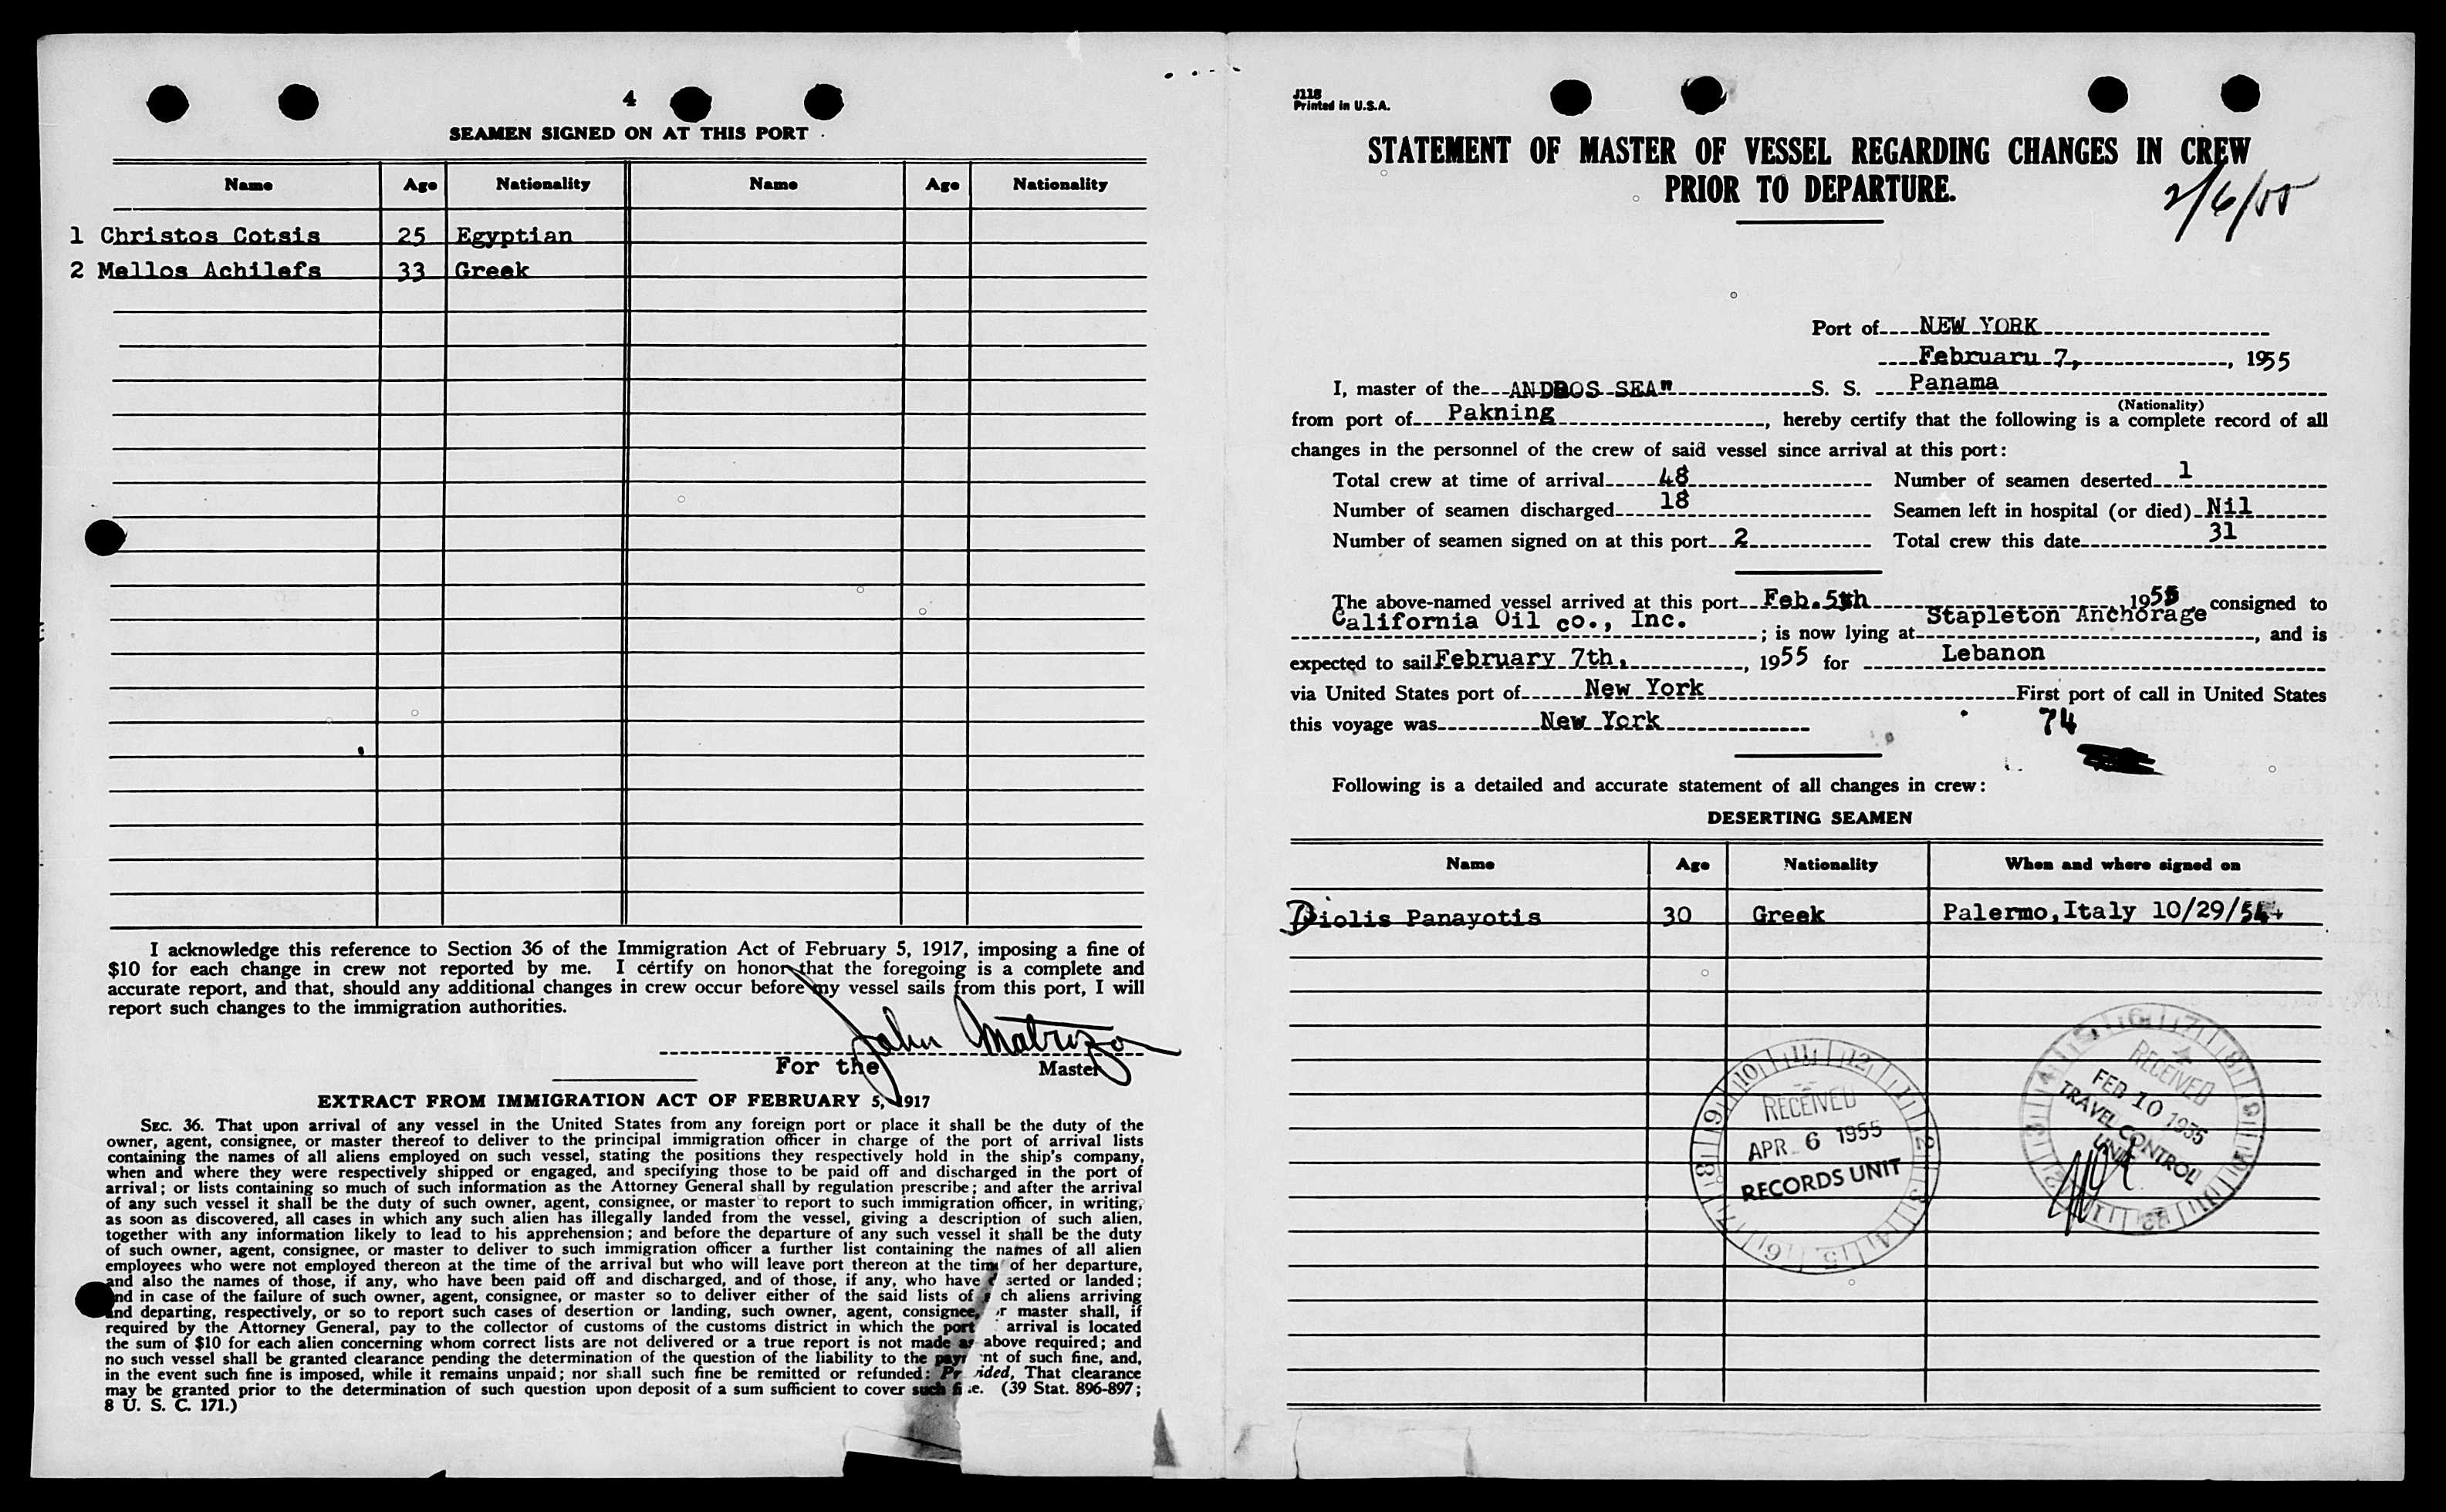 4
SEAMEN SIGNED ON AT THIS PORT
Name Age Nationality Name Age Nationality
1 Christos Cotsis 25 Egyptian
2 Mellos Achilefs 33 Greek
I acknowledge this reference to Section 36 of the Immigration Act of February 5, 1917, imposing a fine of
$10 for each change in crew not reported by me. I certify on honor that the foregoing is a complete and
accurate report, and that, should any additional changes in crew occur before my vessel sails from this port, I will
report such changes to the immigration authorities.
John
For the Master
EXTRACT FROM IMMIGRATION ACT OF FEBRUARY 5, 1917
SEC. 36. That upon arrival of any vessel in the United States from any foreign port or place it shall be the duty of the
owner, agent, consignee, or master thereof to deliver to the principal immigration officer in charge of the port of arrival lists
containing the names of all aliens employed on such vessel, stating the positions they respectively hold in the ship's company,
when and where they were respectively shipped or engaged, and specifying those to be paid off and discharged in the port of
arrival; or lists containing so much of such information as the Attorney General shall by regulation prescribe; and after the arrival
of any such vessel it shall be the duty of such owner, agent, consignee, or master to report to such immigration officer, in writing,
as soon as discovered, all cases in which any such alien has illegally landed from the vessel, giving a description of such alien,
together with any information likely to lead to his apprehension; and before the departure of any such vessel it shall be the duty
of such owner, agent, consignee, or master to deliver to such immigration officer a further list containing the names of all alien
employees who were not employed thereon at the time of the arrival but who will leave port thereon at the time of her departure,
and also the names of those, if any, who have been paid off and discharged, and of those, if any, who have deserted or landed;
and in case of the failure of such owner, agent, consignee, or master so to deliver either of the said lists of such aliens arriving
and departing, respectively, or so to report such cases of desertion or landing, such owner, agent, consignee, or master shall, if
required by the Attorney General, pay to the collector of customs of the customs district in which the port of arrival is located
the sum of $10 for each alien concerning whom correct lists are not delivered or a true report is not made as above required; and
no such vessel shall be granted clearance pending the determination of the question of the liability to the payment of such fine, and,
in the event such fine is imposed, while it remains unpaid; nor shall such fine be remitted or refunded: Provided, That clearance
may be granted prior to the determination of such question upon deposit of a sum sufficient to cover such fine. (39 Stat. 896-897;
8 U. S. C. 171.)
J118
Printed in U.S.A.
STATEMENT OF MASTER OF VESSEL REGARDING CHANGES IN CREW
PRIOR TO DEPARTURE.
2/6/55
Port of NEW YORK
Februaru 7, , 1955
I, master of the ANDROS SEA" S. S. Panama
(Nationality)
from port of Pakning , hereby certify that the following is a complete record of all
changes in the personnel of the crew of said vessel since arrival at this port:
Total crew at time of arrival 48 Number of seamen deserted 1
Number of seamen discharged 18 Seamen left in hospital (or died) Nil
Number of seamen signed on at this port 2 Total crew this date 31
The above-named vessel arrived at this port Feb. 5th 1955 consigned to
California Oil co., Inc. ; is now lying at Stapleton Anchorage , and is
expected to sail February 7th, , 1955 for Lebanon
via United States port of New York First port of call in United States
this voyage was New York
74
Following is a detailed and accurate statement of all changes in crew:
DESERTING SEAMEN
Name Age Nationality When and where signed on
Diolis Panayotis 30 Greek Palermo, Italy 10/29/54
RECEIVED
APR 6 1955
RECORDS UNIT
RECEIVED
FEB 10 1955
TRAVEL CONTROL
UNIT